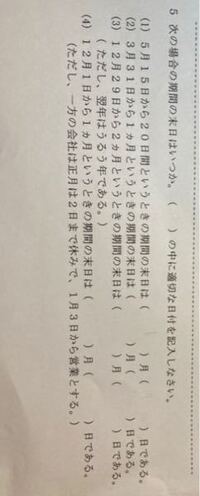 5 次の場合の期間の末日はいつか。（　　）の中に適切な日付を記入しなさい。
(1) 5月15日から20日間というときの期間の末日は（　　）月（　　）日である。
(2) 3月31日から1ヵ月というときの期間の末日は（　　）月（　　）日である。
(3) 12月29日から2ヵ月というときの期間の末日は（　　）月（　　）日である。
（ただし、翌年はうるう年である。）
(4) 12月1日から1ヵ月というときの期間の末日は（　　）月（　　）日である。
（ただし、一方の会社は正月は2日まで休みで、1月3日から営業とする。）